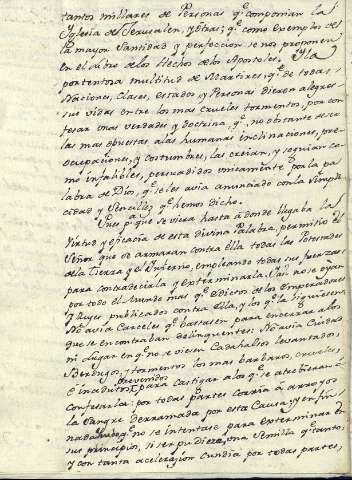 tantos millares de Personas qᵉ componian la
Iglesia de Jerusalen, y otras; qᵉ como exemplos de
la mayor Santidad y perfeccion se nos proponen
en el Libro de los Hechos de los Apostoles. Y la
portentosa multitud de Martires, qᵉ de todas
Naciones, Clases, estados y Personas dieron alegres
sus vidas entre los mas crueles tormentos, por con
fesar unas verdades y doctrina, qᵉ, no obstante de ser
las mas opuestas a las humanas inclinaciones, pre-
ocupaciones, y costumbres, las creian, y seguian co
mo infalibles, persuadidos unicamente por la pa
labra de Dios, qᵉ se les avia anunciado con la Simpli-
cidad y Sencillez qᵉ hemos dicho.
Pues pᵃ qᵉ se viera hasta adonde llegaba la
Virtud y eficacia de esta divina Palabra, permitió el
Señor que se armaran contra ella todas las Potestades
de la Tierra y el Infierno, empleando todas sus fuerzas
para contradecirla y exterminarla. Casi no se oyan
por todo el Mundo mas qᵉ Edictos de los Emperadores
y Reyes publicados contra Ella, y los qᵉ la siguiesen.
No avia Carceles qᵉ bastasen para encerrar a los
que se encontraban delinquentes: No avia Ciudad
ni Lugar en qᵉ no se viesen Cadahalsos levantados,
Verdugos, y tormentos los mas barbaros, crueles,
e inauditos prevenidos para castigar a los qᵉ se atrebieran á
confesarla: por todas partes corria á arroyos
la Sangre derramada por esta Causa; y en fin,
nada hubo qᵉ no se intentase para exterminar en
sus principios, si ser pudiera, una Semilla qᵉ tanto,
y con tanta aceleracion cundia por todas partes,